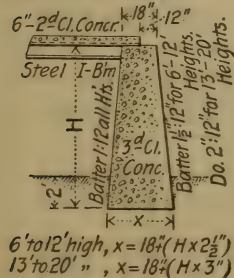 6"-2d Cl. Concr.
18"
12"
X
Steel I-B'm
H
2'
Batter 1:12 all Hts.
3d Cl.
Conc.
Batter 1½":12" for 6'-12'
Heights.
Do. 2":12" for 13'-20'
Heights.
x
6' to 12' high, x = 18"+(H x 2½")
13' to 20' " , x = 18"+(H x 3")